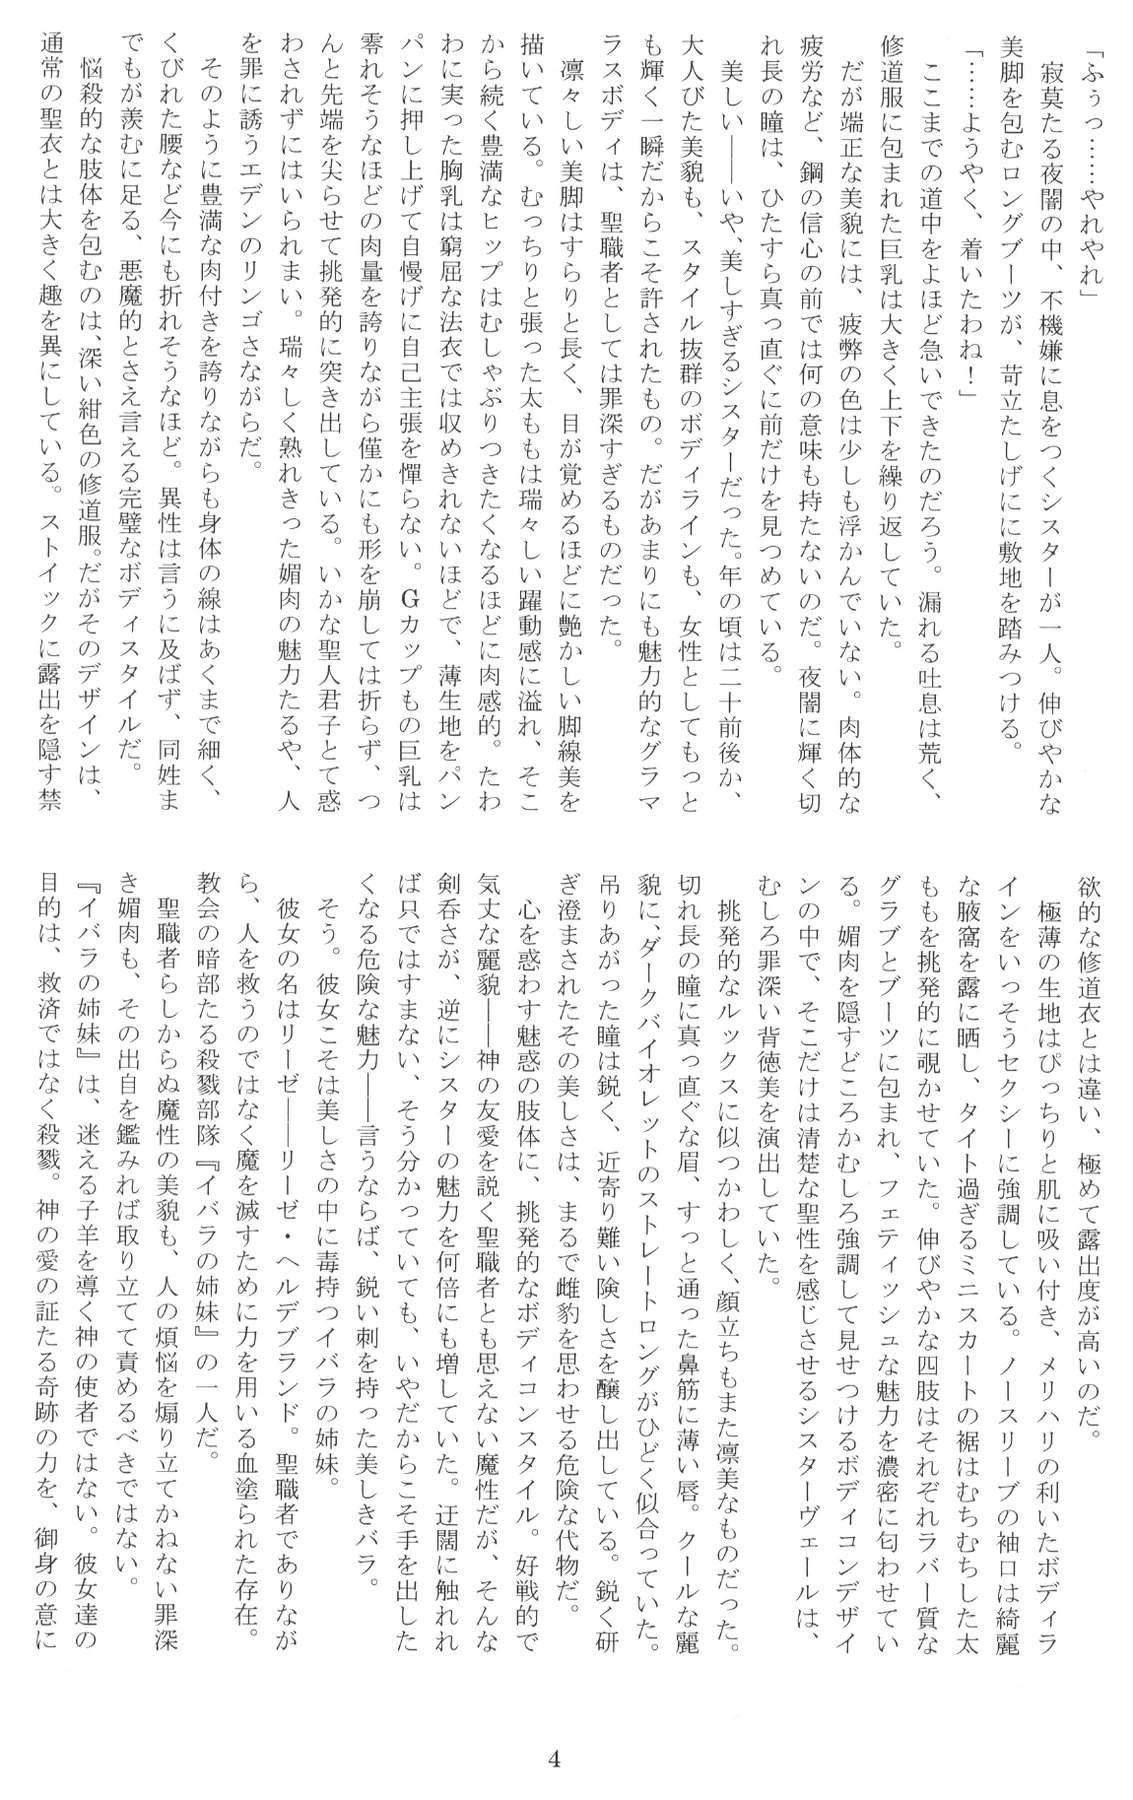 「ふぅっ……やれやれ」
　寂莫たる夜闇の中、不機嫌に息をつくシスターが一人。伸びやかな
美脚を包むロングブーツが、苛立たしげにに敷地を踏みつける。
「……ようやく、着いたわね！」
　ここまでの道中をよほど急いできたのだろう。漏れる吐息は荒く、
修道服に包まれた巨乳は大きく上下を繰り返していた。
　だが端正な美貌には、疲弊の色は少しも浮かんでいない。肉体的な
疲労など、鋼の信心の前では何の意味も持たないのだ。夜闇に輝く切
れ長の瞳は、ひたすら真っ直ぐに前だけを見つめている。
　美しい――いや、美しすぎるシスターだった。年の頃は二十前後か、
大人びた美貌も、スタイル抜群のボディラインも、女性としてもっと
も輝く一瞬だからこそ許されたもの。だがあまりにも魅力的なグラマ
ラスボディは、聖職者としては罪深すぎるものだった。
　凛々しい美脚はすらりと長く、目が覚めるほどに艶かしい脚線美を
描いている。むっちりと張った太ももは瑞々しい躍動感に溢れ、そこ
から続く豊満なヒップはむしゃぶりつきたくなるほどに肉感的。たわ
わに実った胸乳は窮屈な法衣では収めきれないほどで、薄生地をパン
パンに押し上げて自慢げに自己主張を憚らない。Ｇカップもの巨乳は
零れそうなほどの肉量を誇りながら僅かにも形を崩しては折らず、つ
んと先端を尖らせて挑発的に突き出している。いかな聖人君子とて惑
わされずにはいられまい。瑞々しく熟れきった媚肉の魅力たるや、人
を罪に誘うエデンのリンゴさながらだ。
　そのように豊満な肉付きを誇りながらも身体の線はあくまで細く、
くびれた腰など今にも折れそうなほど。異性は言うに及ばず、同姓ま
でもが羨むに足る、悪魔的とさえ言える完璧なボディスタイルだ。
　悩殺的な肢体を包むのは、深い紺色の修道服。だがそのデザインは、
通常の聖衣とは大きく趣を異にしている。ストイックに露出を隠す禁
欲的な修道衣とは違い、極めて露出度が高いのだ。
　極薄の生地はぴっちりと肌に吸い付き、メリハリの利いたボディラ
インをいっそうセクシーに強調している。ノースリーブの袖口は綺麗
な腋窩を露に晒し、タイト過ぎるミニスカートの裾はむちむちした太
ももを挑発的に覗かせていた。伸びやかな四肢はそれぞれラバー質な
グラブとブーツに包まれ、フェティッシュな魅力を濃密に匂わせてい
る。媚肉を隠すどころかむしろ強調して見せつけるボディコンデザイ
ンの中で、そこだけは清楚な聖性を感じさせるシスターヴェールは、
むしろ罪深い背徳美を演出していた。
　挑発的なルックスに似つかわしく、顔立ちもまた凛美なものだった。
切れ長の瞳に真っ直ぐな眉、すっと通った鼻筋に薄い唇。クールな麗
貌に、ダークバイオレットのストレートロングがひどく似合っていた。
吊りあがった瞳は鋭く、近寄り難い険しさを醸し出している。鋭く研
ぎ澄まされたその美しさは、まるで雌豹を思わせる危険な代物だ。
　心を惑わす魅惑の肢体に、挑発的なボディコンスタイル。好戦的で
気丈な麗貌――神の友愛を説く聖職者とも思えない魔性だが、そんな
剣呑さが、逆にシスターの魅力を何倍にも増していた。迂闊に触れれ
ば只ではすまない、そう分かっていても、いやだからこそ手を出した
くなる危険な魅力――言うならば、鋭い刺を持った美しきバラ。
　そう。彼女こそは美しさの中に毒持つイバラの姉妹。
　彼女の名はリーゼ――リーゼ・ヘルデブランド。聖職者でありなが
ら、人を救うのではなく魔を滅すために力を用いる血塗られた存在。
教会の暗部たる殺戮部隊『イバラの姉妹』の一人だ。
　聖職者らしからぬ魔性の美貌も、人の煩悩を煽り立てかねない罪深
き媚肉も、その出自を鑑みれば取り立てて責めるべきではない。
『イバラの姉妹』は、迷える子羊を導く神の使者ではない。彼女達の
目的は、救済ではなく殺戮。神の愛の証たる奇跡の力を、御身の意に
4